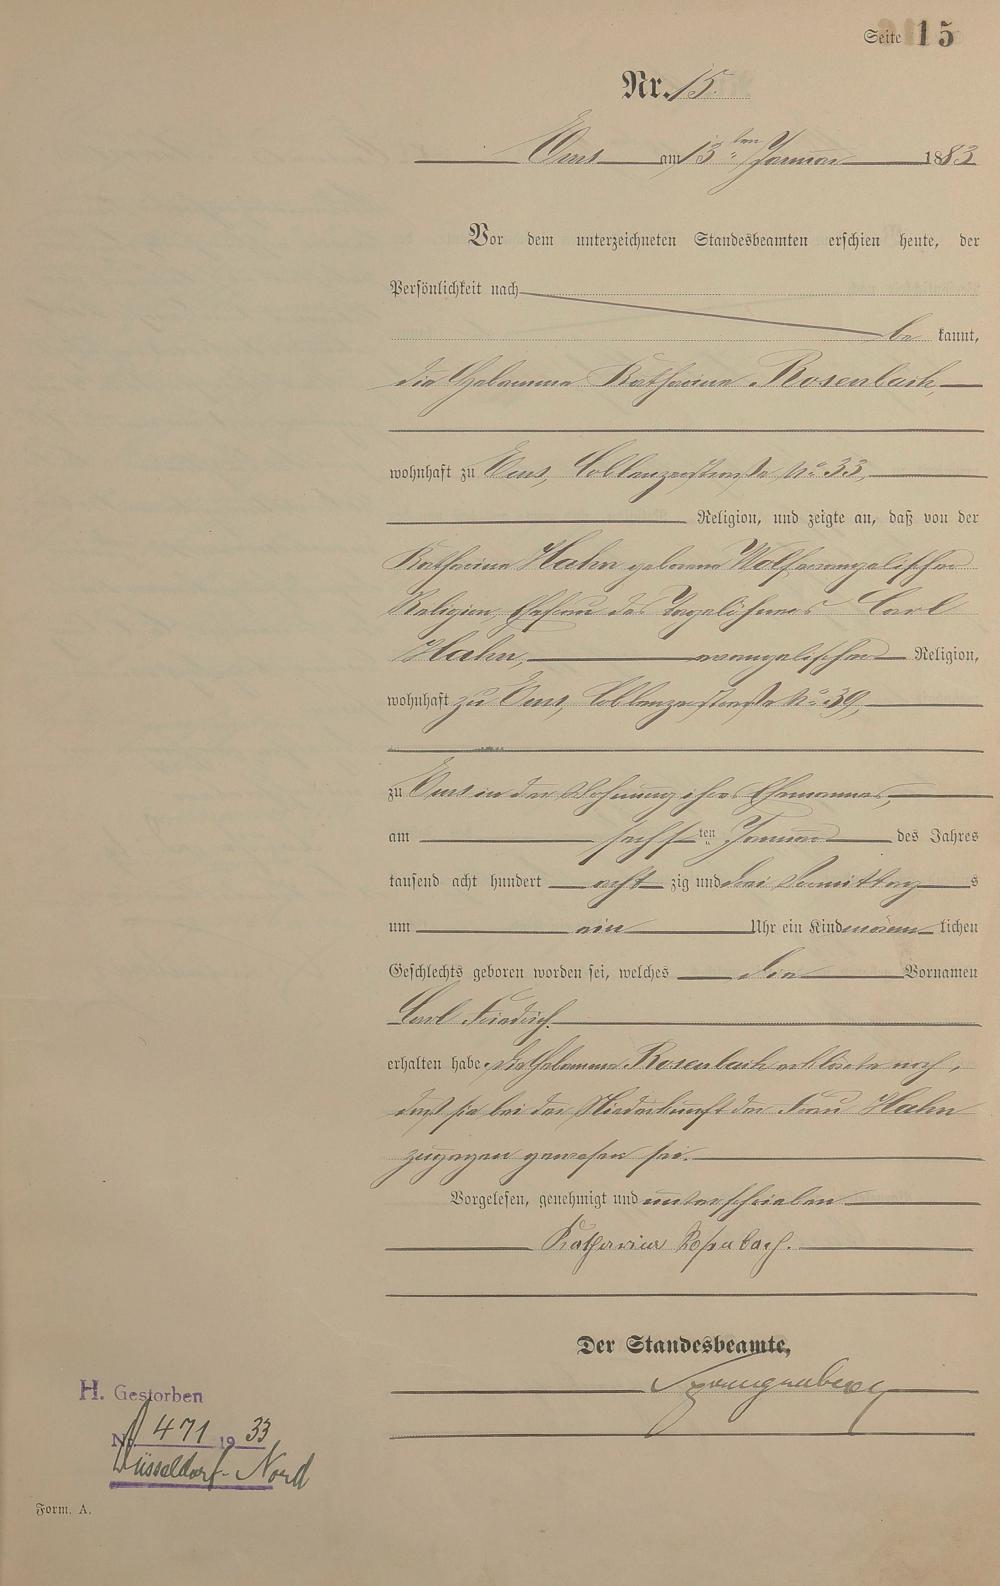 Seite 15
Nr. 15.
Ems am 13ten Januar 1883
Vor dem unterzeichneten Standesbeamten erschien heute, der
Persönlichkeit nach
be kannt,
die Hebamme Katharina Rosenbach,
wohnhaft zu Ems, Coblenzerstraße No 33,
Religion, und zeigte an, daß von der
Katharina Hahn geborene evangelischer
Religion, Ehefrau des Tagelöhners Carl
Hahn, evangelischer Religion,
wohnhaft zu Ems, Coblenzerstraße No 39,
zu Ems in der Wohnung ihres Ehemannes,
am sechsten Januar des Jahres
tausend acht hundert acht zig und drei Vormittags
um ein Uhr ein Kind männlichen
Geschlechts geboren worden sei, welches die Vornamen
Carl Friedrich
erhalten habe. Die Hebamme Rosenbach erklärte noch,
daß sie bei der Niederkunft der Frau Hahn
zugegen gewesen sei.
Vorgelesen, genehmigt und unterschrieben
Katharina Rosenbach.
Der Standesbeamte,
Spangenberg
H. Gestorben
Nr. 471 1933
Düsseldorf-Nord
Form. A.